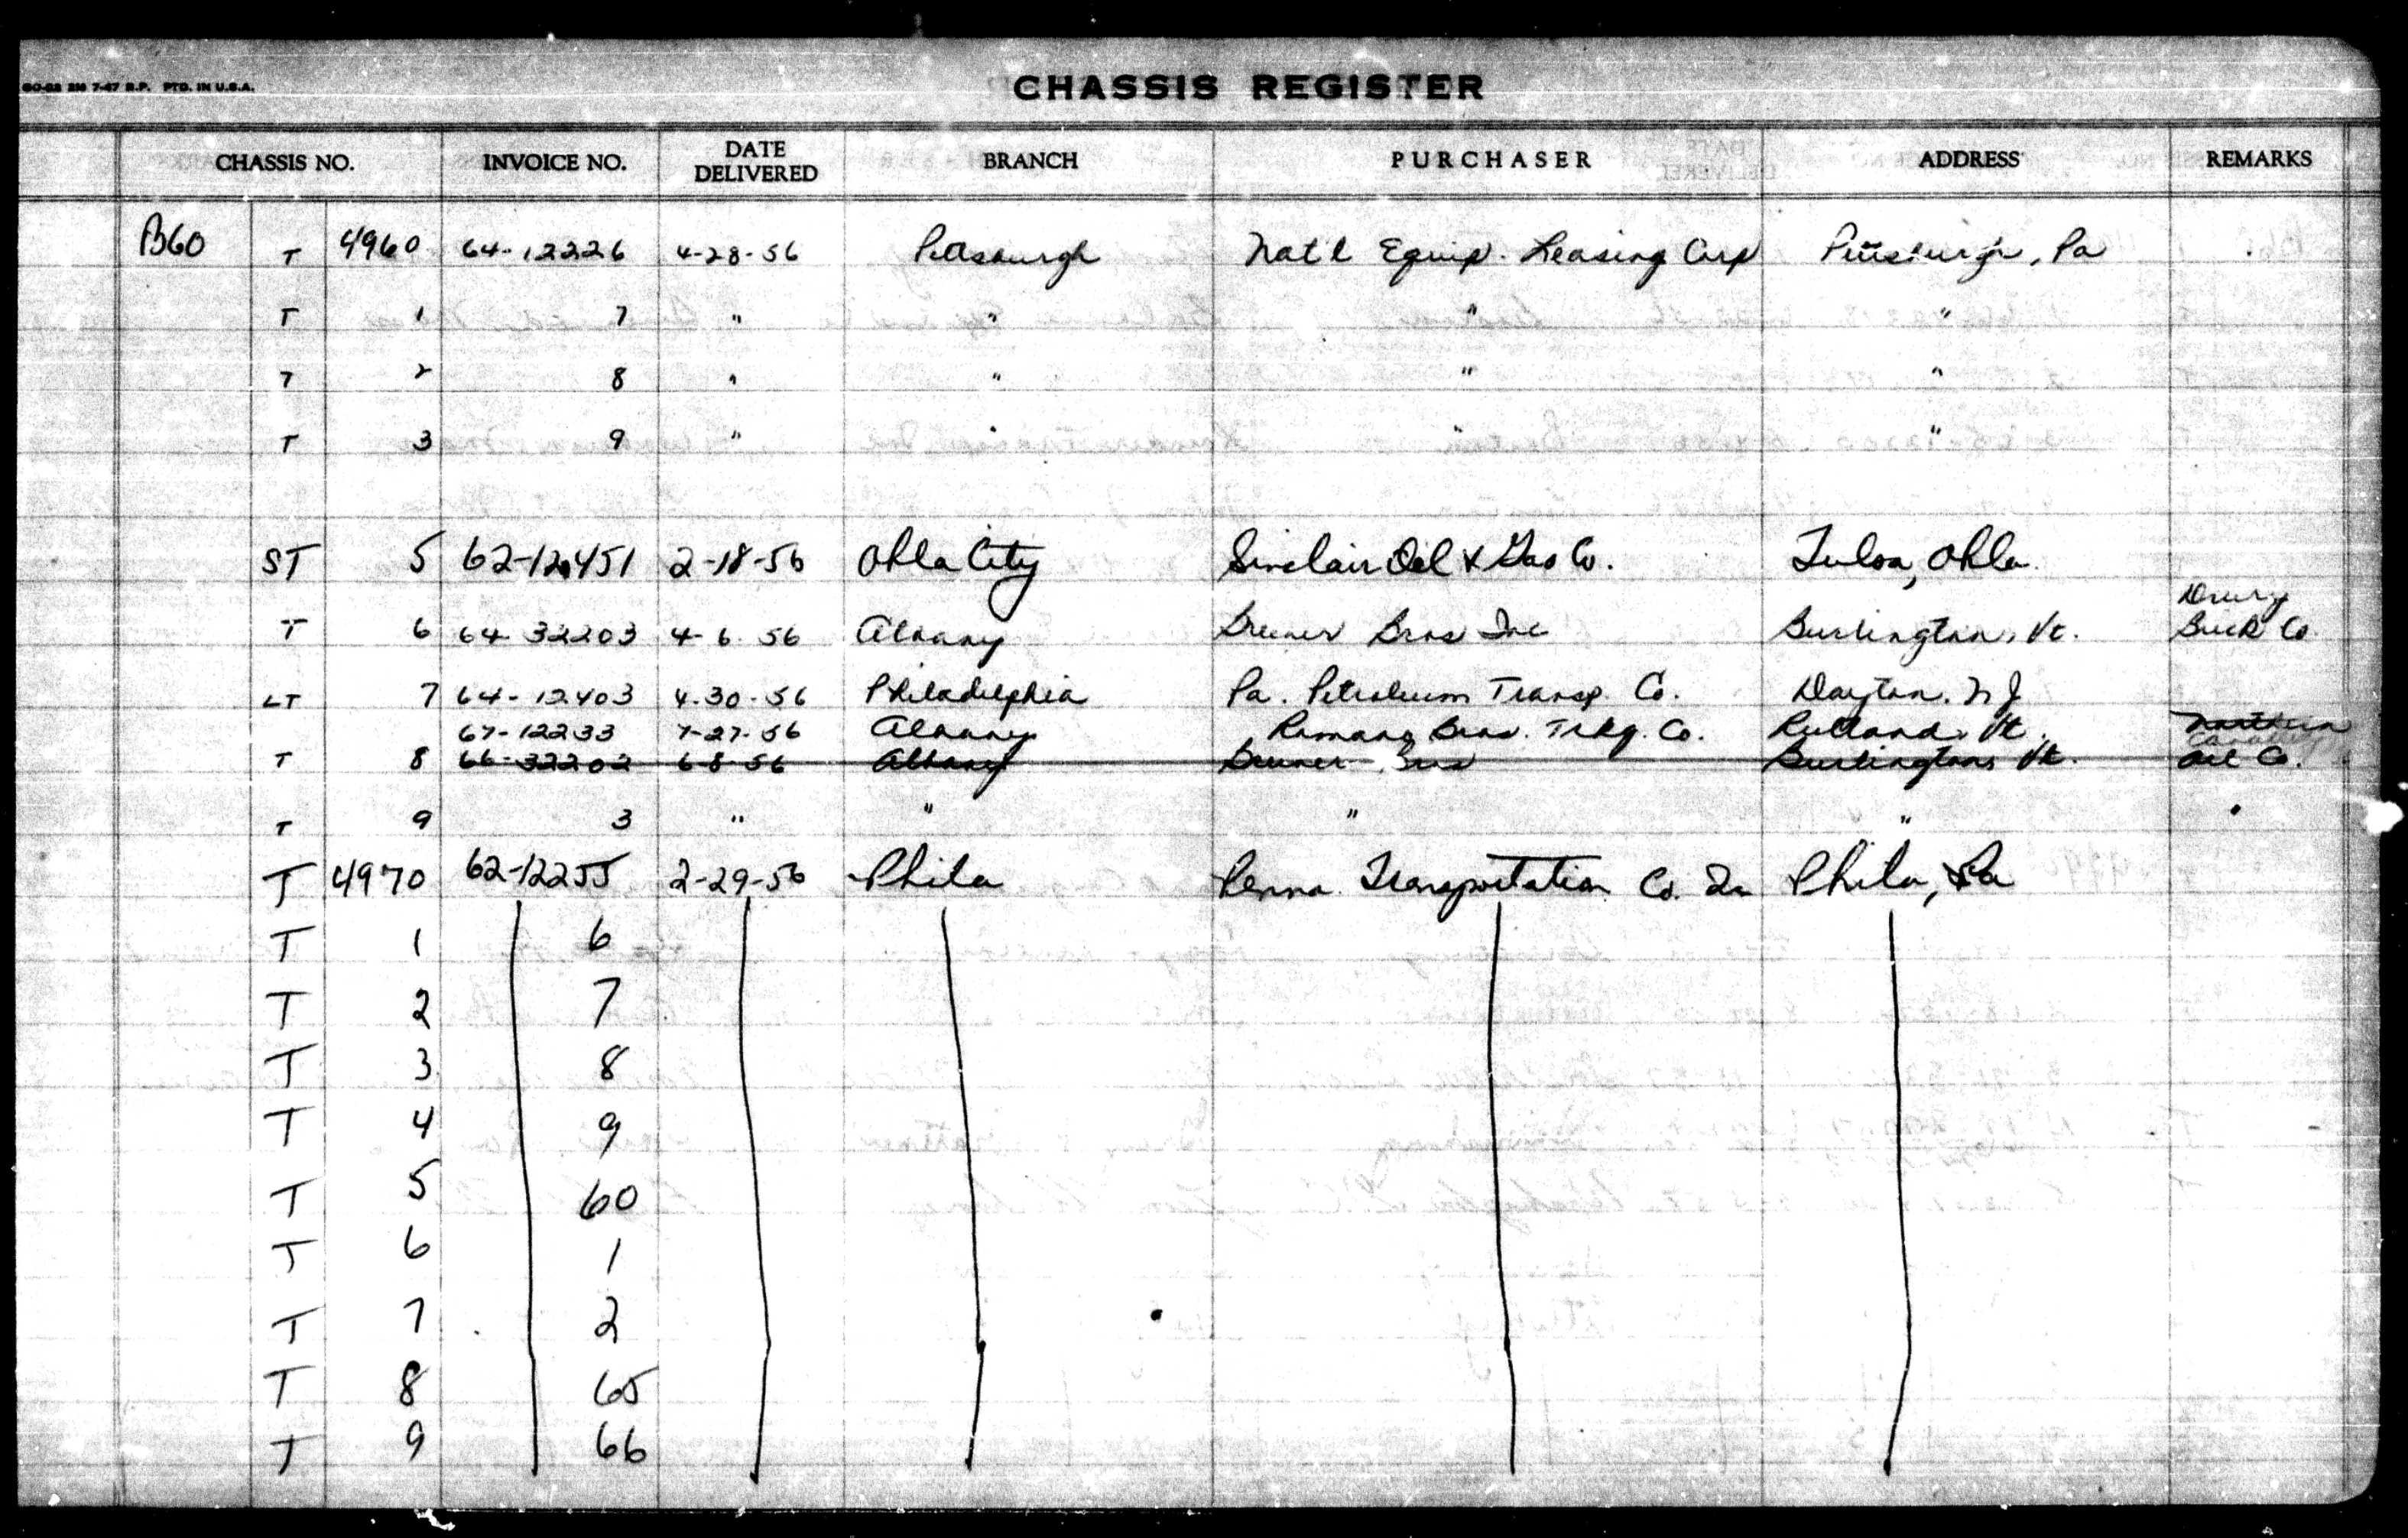 CHASSIS REGISTER
CHASSIS NO. INVOICE NO. DATE DELIVERED BRANCH PURCHASER ADDRESS REMARKS
B60 T 4960 64-12226 4-28-56 Pittsburgh Nat'l Equip. Leasing Corp Pittsburgh, Pa
T 1 7 " " " "
T 2 8 " " " "
T 3 9 " " " "
ST 5 62-12451 2-18-56 Okla City Sinclair Oil & Gas Co. Tulsa, Okla
Drury
T 6 64-32203 4-6-56 Albany Bros Inc Burlington, Vt. Co.
LT 7 64-12403 4-30-56 Philadelphia Pa. Petroleum Transp. Co. Dayton, NJ
67-12233 7-27-56 Albany Romano Bros. Trkg. Co. Rutland Vt. Northern
T 8 66-32202 6-8-56 Albany Bros Burlington, Vt. Oil Co.
T 9 3 " " " "
T 4970 62-12255 2-29-56 Phila Penna Transportation Co. In Phila, Pa
T 1 6
T 2 7
T 3 8
T 4 9
T 5 60
T 6 1
T 7 2
T 8 65
T 9 66